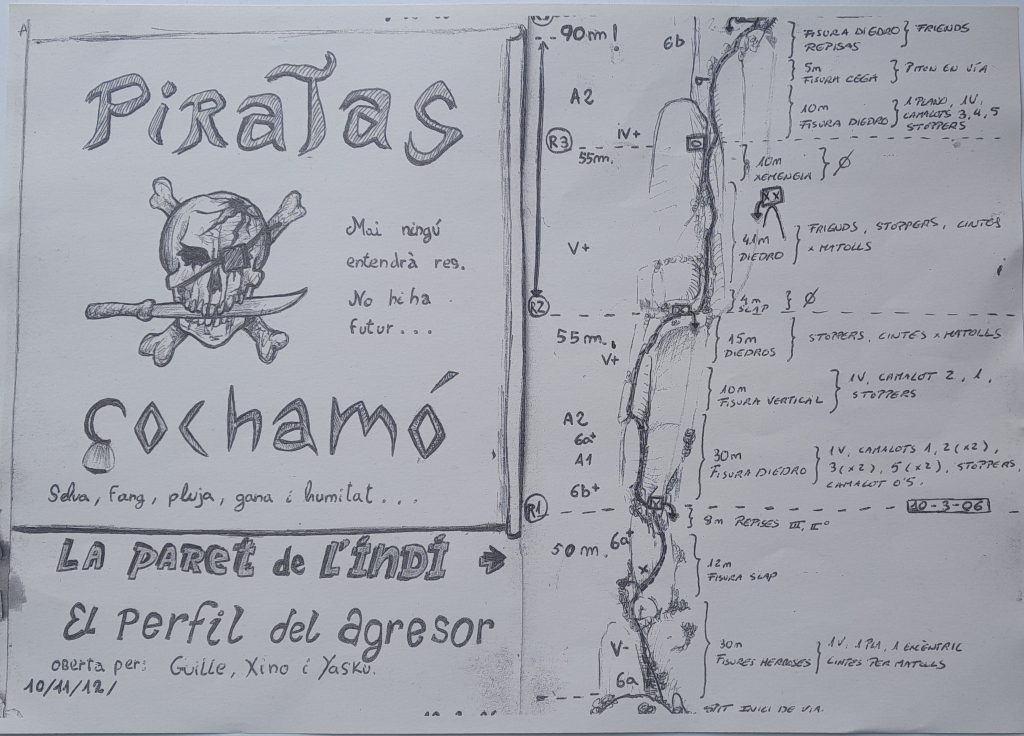 PiRaTas
Mai ningú
entendrà res.
No hi ha
futur...
Cochamó
Selva, fang, pluja, gana i humitat...
LA PARET de L'ÍNDI
El Perfil del agresor
oberta per: Guille, Xino i Yasku.
10/11/12/
90m!
6b
FISURA DIEDRO
REPISAS
FRIENDS
5m
FISURA CEGA
PITON EN VÍA
A2
10m
FISURA DIEDRO
1 PLANO, 1V.
CAMALOTS 3, 4, 5
STOPPERS
R3
IV+
55m.
10m
XEMENEIA
Ø
V+
41m
DIEDRO
FRIENDS, STOPPERS, CINTES
x MATOLLS
R2
4m
SLAP
Ø
55m.
V+
15m
DIEDROS
STOPPERS, CINTES x MATOLLS
10m
FISURA VERTICAL
1V, CAMALOT 2, 1,
STOPPERS
A2
6a+
A1
6b+
30m
FISURA DIEDRO
1V, CAMALOTS 1, 2(x2),
3(x2), 5(x2), STOPPERS,
CAMALOT 0'5.
R1
10-3-06
8m REPISES III, II°
50m.
6a+
12m
FISURA SLAP
V-
6a
30m
FISURES HERBOSES
1V, 1 PLA, 1 EXCÈNTRIC
CINTES PER MATOLLS
SPIT INICI DE VIA.